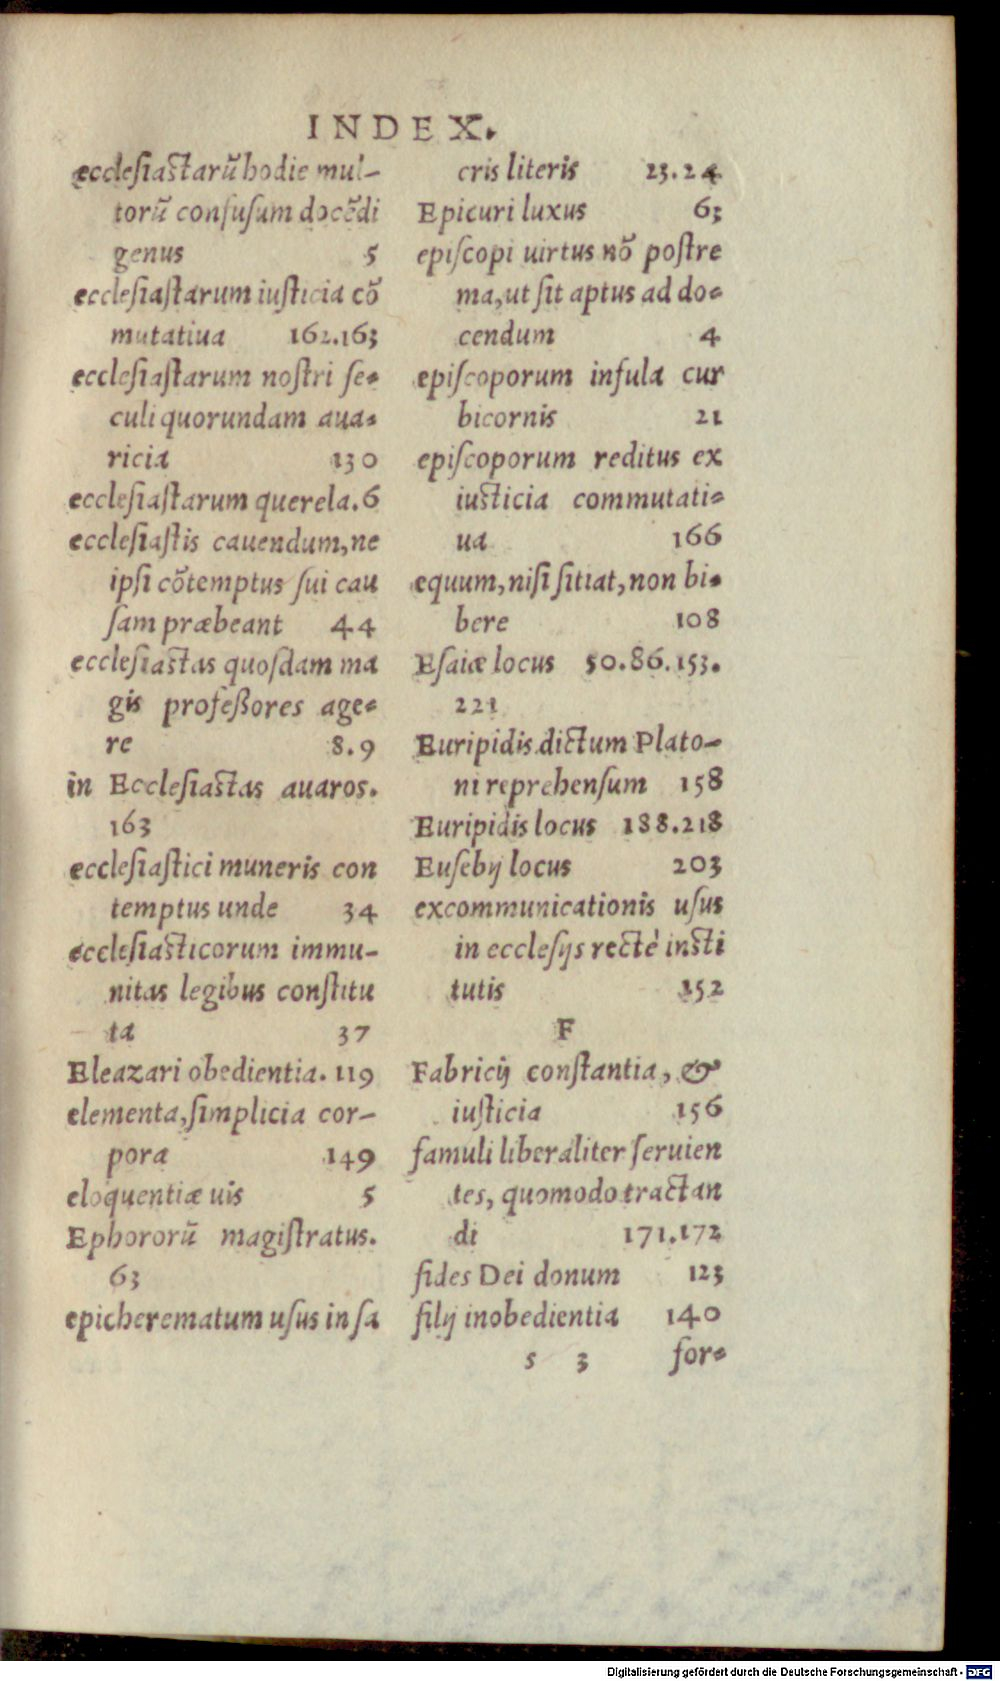 INDEX.
ecclesiastarũ hodie mul-
torũ confusum docẽdi
genus 5
ecclesiastarum iusticia cõ
mutatiua 162.163
ecclesiastarum nostri se-
culi quorundam aua-
ricia 130
ecclesiastarum querela. 6
ecclesiastis cauendum, ne
ipsi cõtemptus sui cau
sam præbeant 44
ecclesiastas quosdam ma
gis professores age-
re 8.9
in Ecclesiastas auaros.
163
ecclesiastici muneris con
temptus unde 34
ecclesiasticorum immu-
nitas legibus constitu
ta 37
Eleazari obedientia. 119
elementa, simplicia cor-
pora 149
eloquentiæ uis 5
Ephororũ magistratus.
63
epicherematum usus in sa
cris literis 23.24
Epicuri luxus 63
episcopi uirtus nõ postre
ma, ut sit aptus ad do-
cendum 4
episcoporum infula cur
bicornis 21
episcoporum reditus ex
iusticia commutati-
ua 166
equum, nisi sitiat, non bi-
bere 108
Esaiæ locus 50.86.153.
221
Euripidis dictum Plato-
ni reprehensum 158
Euripidis locus 188.218
Eusebij locus 203
excommunicationis usus
in ecclesijs rectè insti
tutis 152
F
Fabricij constantia, &
iusticia 156
famuli liberaliter seruien
tes, quomodo tractan
di 171.172
fides Dei donum 123
filij inobedientia 140
s 3 for-
Digitalisierung gefördert durch die Deutsche Forschungsgemeinschaft - DFG